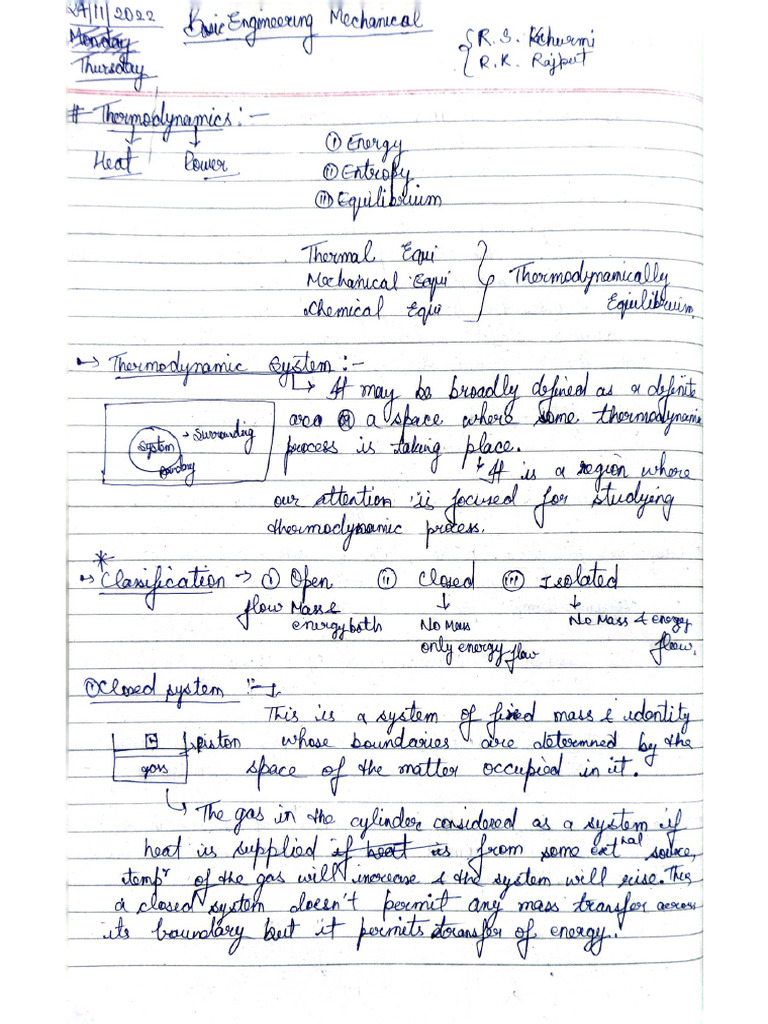 24/11/2022
Basic Engineering Mechanical
Monday
Thursday
R. S. Khurmi
R. K. Rajput
# Thermodynamics :-
Heat Power
(i) Energy
(ii) Entropy
(iii) Equilibrium
Thermal Equi
Mechanical Equi
Chemical Equi
Thermodynamically
Equilibrium.
→ Thermodynamic system :-
↳ It may be broadly defined as a definite
area or a space where some thermodynamic
process is taking place.
System → Surrounding
↳ It is a region where
our attention is focused for studying
thermodynamic process.
* → Classification → (i) Open (ii) Closed (iii) Isolated
flow Mass &
energy both
No Mass
only energy flow
No Mass & energy
flow.
(i) Closed system :-
This is a system of fixed mass & identity
piston whose boundaries are determned by the
gas space of the matter occupied in it.
↳ The gas in the cylinder considered as a system if
heat is supplied if heat is from some extnal source,
tempr of the gas will increase & the system will rise. This
a closed system doesn't permit any mass transfer across
its boundary but it permits transfer of energy.